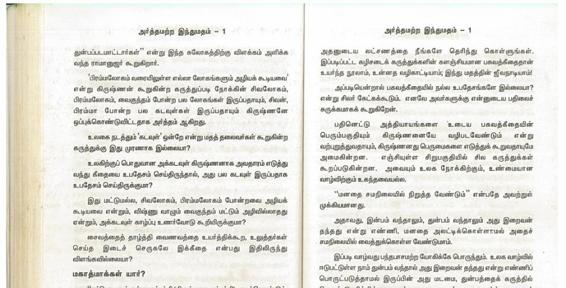 அர்த்தமற்ற இந்துமதம் – 1
துன்பப்படமாட்டார்கள்" என்று இந்த சுலோகத்திற்கு விளக்கம் அளிக்க
வந்த ராமானுஜர் கூறுகிறார்.
'பிரம்மலோகம் வரையிலுள்ள எல்லா லோகங்களும் அழியக் கூடியவை'
என்று கிருஷ்ணன் கூறுகின்ற கருத்துப்படி நோக்கின் சிவலோகம்,
பிரம்மலோகம், வைகுந்தம் போன்ற பல லோகங்கள் இருப்பதாயும், சிவன்,
பிரம்மா போன்ற பல கடவுள்கள் இருப்பதாயும் கிருஷ்ணனே
ஒப்புக்கொண்டுவிட்டதாக அர்த்தம் ஆகிறது.
உலகை நடத்தும் 'கடவுள்' ஒன்றே என்று மதத் தலைவர்கள் கூறுகின்ற
கருத்துக்கு இது முரணாக இல்லையா?
உலகிற்குப் பொதுவான அக்கடவுள் கிருஷ்ணனாக அவதாரம் எடுத்து
வந்து கீதையை உபதேசம் செய்திருந்தால், அது பல கடவுள் இருப்பதாக
உபதேசம் செய்திருக்குமா?
இது மட்டுமல்ல, சிவலோகம், பிரம்மலோகம் போன்றவை அழியக்
கூடியவை என்றும், விஷ்ணு வாழும் வைகுந்தம் மட்டும் அழிவில்லாதது
என்றும், அக்கடவுள் காழ்ப்பு உணர்வோடு கூறியிருக்குமா?
சைவத்தைத் தாழ்த்தி வைணவத்தை உயர்த்திக்கூற, உலுத்தர்கள்
செய்த இடைச் செருகலே இக்கீதை என்பது இதிலிருந்து
விளங்கவில்லையா?
மகாத்மாக்கள் யார்?
அர்த்தமற்ற இந்துமதம் – 1
அதனுடைய லட்சணத்தை நீங்களே தெரிந்து கொள்ளுங்கள்.
இப்படிப்பட்ட கழிசடைக் கருத்துக்களின் களஞ்சியமான பகவத்கீதைதான்
உயர்ந்த நூலாம், உன்னத வழிகாட்டியாம்; இந்து மதத்தின் ஜீவநாடியாம்!
அப்படியென்றால் பகவத்கீதையில் நல்ல உபதேசங்களே இல்லையா?
என்று சிலர் கேட்கக்கூடும். எனவே அவர்களுக்கு என்னுடைய பதிலைச்
சுருக்கமாகக் கூறுகிறேன்.
பதினெட்டு அத்தியாயங்களை உடைய பகவத்கீதையின்
பெரும்பகுதியும் கிருஷ்ணனையே வழிபடவேண்டும் என்று
வற்புறுத்துவதாயும், கிருஷ்ணனது பெருமைகளை எடுத்துக் கூறுவதாயுமே
அமைகின்றன. எஞ்சியுள்ள சிறுபகுதியில் சில கருத்துக்கள்
கூறப்படுகின்றன. அவையும் உலக நோக்கிற்கும், உண்மையான
வாழ்விற்கும் உகந்தவையல்ல,
"மனதை சமநிலையில் நிறுத்த வேண்டும்" என்பதே அவற்றுள்
முக்கியமானது.
அதாவது, இன்பம் வந்தாலும், துன்பம் வந்தாலும் அது இறைவன்
தந்தது என்று எண்ணி, மனதை அலட்டிக்கொள்ளாமல் அதைச்
சமநிலையில் வைத்துக்கொள்ள வேண்டுமாம்.